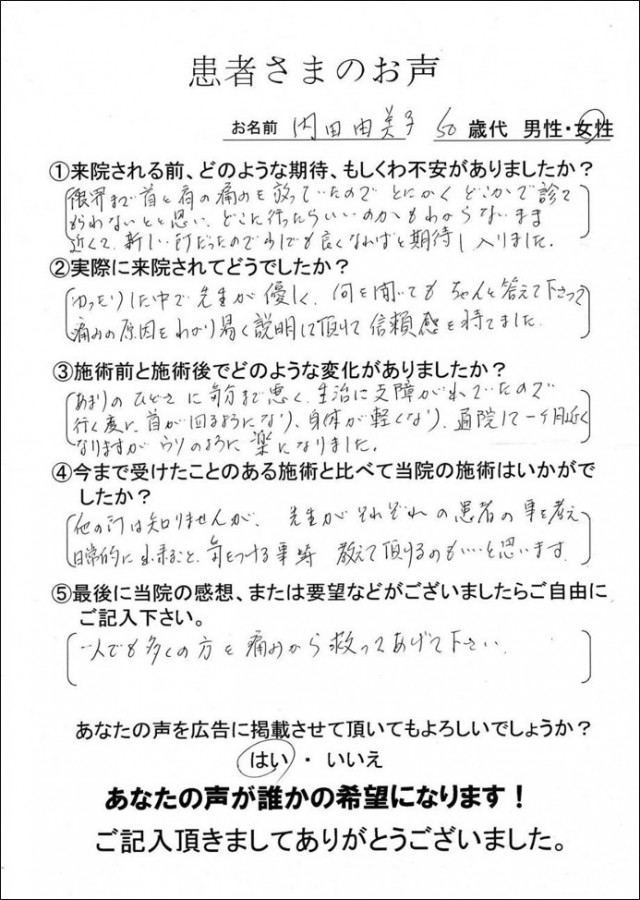 患者さまのお声
お名前 内田由美子 50 歳代 男性・女性
①来院される前、どのような期待、もしくわ不安がありましたか？
限界まで首と肩の痛みを放っていたので とにかく どこかで診て
もらわないとと思い、どこに行ったらいいのかもわからないまま
近くて、新しい所だったので少しでも良くなればと期待し入りました.
②実際に来院されてどうでしたか？
ゆったりした中で先生が優しく、何を聞いても ちゃんと答えて下さって
痛みの原因をわかり易く説明して頂けて信頼感を持てました.
③施術前と施術後でどのような変化がありましたか？
あまりの ひどさ に気分まで悪く、生活に支障がでていたので
行く度に、首が回るようになり、身体が軽くなり、通院して一ヶ月近く
なりますが ウソのように 楽になりました.
④今まで受けたことのある施術と比べて当院の施術はいかがで
したか？
他の所は知りませんが、先生がそれぞれの患者の事を考え
日常的に出来ること、気をつける事等 教えて頂けるのもいいと思います
⑤最後に当院の感想、または要望などがございましたらご自由に
ご記入下さい。
一人でも多くの方を痛みから救ってあげて下さい.
あなたの声を広告に掲載させて頂いてもよろしいでしょうか？
はい ・ いいえ
あなたの声が誰かの希望になります！
ご記入頂きましてありがとうございました。